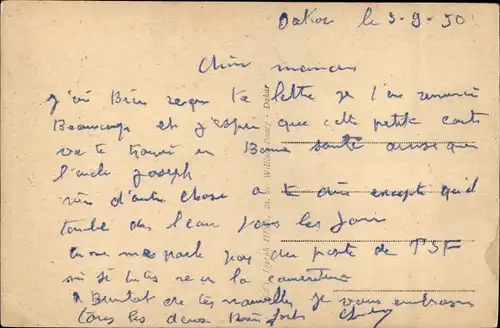 Dakar le 3-9-50
Chère maman
J'ai Bien reçu ta lettre je t'en remercie
Beaucoup et j'espère que cette petite carte
va te trouver en Bonne santé ainsi que
l'oncle joseph
rien d'autre chose a te dire excepté qu'il
tombe de l'eau tous les jours
tu ne me parle pas du poste de TSF
ni si tu as reçu la
a Bientot de tes nouvelles je vous embrasse
tous les deux Bien fort
- Dakar